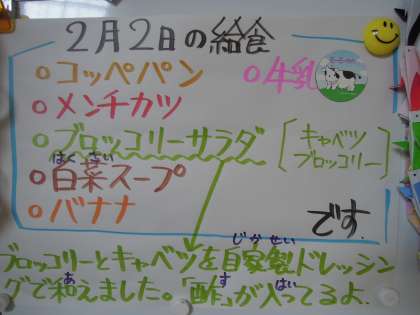 2月2日の給食
○コッペパン ○牛乳
○メンチカツ
○ブロッコリーサラダ [キャベツ ブロッコリー]
はくさい
○白菜スープ
○バナナ
です。
じかせい
ブロッコリーとキャベツを自家製ドレッシン
あ す はい
グで和えました。「酢」が入ってるよ.